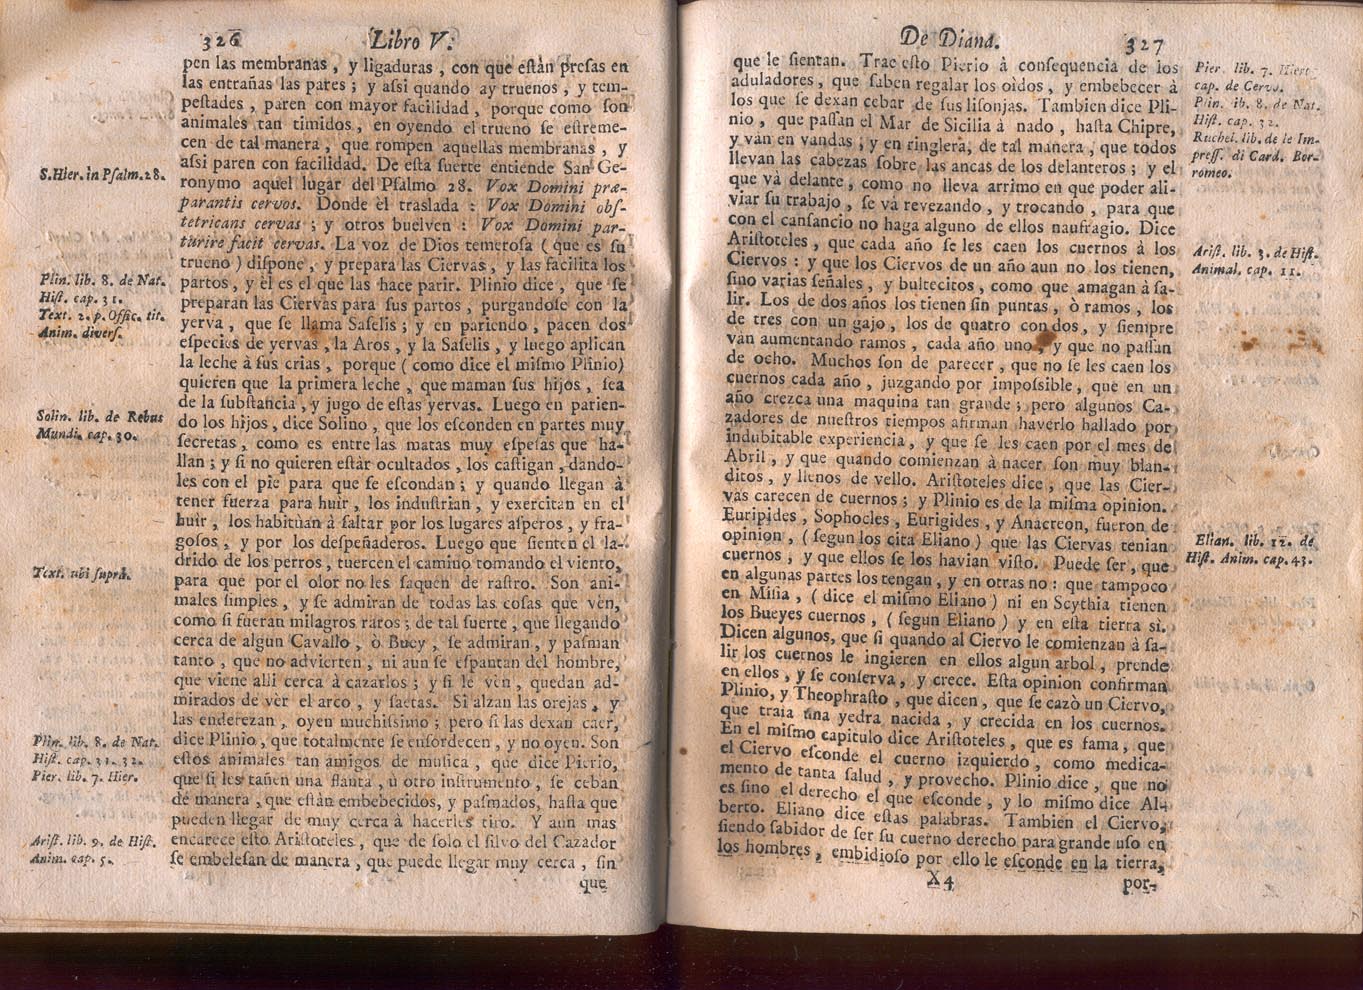 326 Libro V.
pen las membranas, y ligaduras, con que eſtàn preſas en
las entrañas las pares; y aſsi quando ay truenos, y tem-
peſtades, paren con mayor facilidad, porque como ſon
animales tan timidos, en oyendo el trueno ſe eſtreme-
cen de tal manera, que rompen aquellas membranas, y
aſsi paren con facilidad. De eſta ſuerte entiende San Ge-
ronymo aquel lugar del Pſalmo 28. Vox Domini præ-
parantis cervos. Donde èl traslada: Vox Domini obſ-
tetricans cervas; y otros buelven: Vox Domini par-
turire facit cervas. La voz de Dios temeroſa (que es ſu
trueno) diſpone, y prepara las Ciervas, y las facilita los
partos, y èl es el que las hace parir. Plinio dice, que ſe
preparan las Ciervas para ſus partos, purgandoſe con la
yerva, que ſe llama Saſelis; y en pariendo, pacen dos
eſpecies de yervas, la Aros, y la Saſelis, y luego aplican
la leche à ſus crias, porque (como dice el miſmo Plinio)
quieren que la primera leche, que maman ſus hijos, ſea
de la ſubſtancia, y jugo de eſtas yervas. Luego en parien-
do los hijos, dice Solino, que los eſconden en partes muy
ſecretas, como es entre las matas muy eſpeſas que ha-
llan; y ſi no quieren eſtàr ocultados, los caſtigan, dando-
les con el pie para que ſe eſcondan; y quando llegan à
tener fuerza para huir, los induſtrian, y exercitan en el
huir, los habitùan à ſaltar por los lugares aſperos, y fra-
goſos, y por los deſpeñaderos. Luego que ſienten el la-
drido de los perros, tuercen el camino tomando el viento,
para que por el olor no les ſaquen de raſtro. Son ani-
males ſimples, y ſe admiran de todas las coſas que vèn,
como ſi fueran milagros raros; de tal ſuerte, que llegando
cerca de algun Cavallo, ò Buey, ſe admiran, y paſman
tanto, que no advierten, ni aun ſe eſpantan del hombre,
que viene alli cerca à cazarlos; y ſi le vèn, quedan ad-
mirados de vèr el arco, y ſaetas. Si alzan las orejas, y
las enderezan, oyen muchiſsimo; pero ſi las dexan caer,
dice Plinio, que totalmente ſe enſordecen, y no oyen. Son
eſtos animales tan amigos de muſica, que dice Pierio,
que ſi les tañen una flauta, ù otro inſtrumento, ſe ceban
de manera, que eſtàn embebecidos, y paſmados, haſta que
pueden llegar de muy cerca à hacerles tiro. Y aun mas
encarece eſto Ariſtoteles, que de ſolo el ſilvo del Cazador
ſe embeleſan de manera, que puede llegar muy cerca, ſin
que
S.Hier. in Pſalm.28.
Plin. lib. 8. de Nat.
Hiſt. cap. 31.
Text. 2. p. Offic. tit.
Anim. diverſ.
Solin. lib. de Rebus
Mundi. cap. 30.
Text. ubi ſuprà.
Plin. lib. 8. de Nat.
Hiſt. cap. 31. 32.
Pier. lib. 7. Hier.
Ariſt. lib. 9. de Hiſt.
Anim. cap. 5.
De Diana. 327
que le ſientan. Trae eſto Pierio à conſequencia de los
aduladores, que ſaben regalar los oìdos, y embebecer à
los que ſe dexan cebar de ſus liſonjas. Tambien dice Pli-
nio, que paſſan el Mar de Sicilia à nado, haſta Chipre,
y van en vandas, y en ringlera, de tal manera, que todos
llevan las cabezas ſobre las ancas de los delanteros; y el
que và delante, como no lleva arrimo en que poder ali-
viar ſu trabajo, ſe và revezando, y trocando, para que
con el canſancio no haga alguno de ellos naufragio. Dice
Ariſtoteles, que cada año ſe les caen los cuernos à los
Ciervos: y que los Ciervos de un año aun no los tienen,
ſino varias ſeñales, y bultecitos, como que amagan à ſa-
lir. Los de dos años los tienen ſin puntas, ò ramos, los
de tres con un gajo, los de quatro con dos, y ſiempre
van aumentando ramos, cada año uno, y que no paſſan
de ocho. Muchos ſon de parecer, que no ſe les caen los
cuernos cada año, juzgando por impoſsible, que en un
año crezca una maquina tan grande; pero algunos Ca-
zadores de nueſtros tiempos afirman haverlo hallado por
indubitable experiencia, y que ſe les caen por el mes de
Abril, y que quando comienzan à nacer ſon muy blan-
ditos, y llenos de vello. Ariſtoteles dice, que las Cier-
vas carecen de cuernos; y Plinio es de la miſma opinion.
Euripides, Sophocles, Eurigides, y Anacreon, fueron de
opinion, (ſegun los cita Eliano) que las Ciervas tenian
cuernos, y que ellos ſe los havian viſto. Puede ſer, que
en algunas partes los tengan, y en otras no: que tampoco
en Miſia, (dice el miſmo Eliano) ni en Scythia tienen
los Bueyes cuernos, (ſegun Eliano) y en eſta tierra sì.
Dicen algunos, que ſi quando al Ciervo le comienzan à ſa-
lir los cuernos le ingieren en ellos algun arbol, prende
en ellos, y ſe conſerva, y crece. Eſta opinion confirman
Plinio, y Theophraſto, que dicen, que ſe cazò un Ciervo,
que traìa una yedra nacida, y crecida en los cuernos.
En el miſmo capitulo dice Ariſtoteles, que es fama, que
el Ciervo eſconde el cuerno izquierdo, como medica-
mento de tanta ſalud, y provecho. Plinio dice, que no
es ſino el derecho el que eſconde, y lo miſmo dice Al-
berto. Eliano dice eſtas palabras. Tambien el Ciervo,
ſiendo ſabidor de ſer ſu cuerno derecho para grande uſo en
los hombres, embidioſo por ello le eſconde en la tierra,
X4 por-
Pier. lib. 7. Hier.
cap. de Cervo.
Plin. lib. 8. de Nat.
Hiſt. cap. 32.
Ruchel. lib. de le Im-
preſſ. di Card. Bor-
romeo.
Ariſt. lib. 3. de Hiſt.
Animal. cap. 11.
Elian. lib. 12. de
Hiſt. Anim. cap. 43.